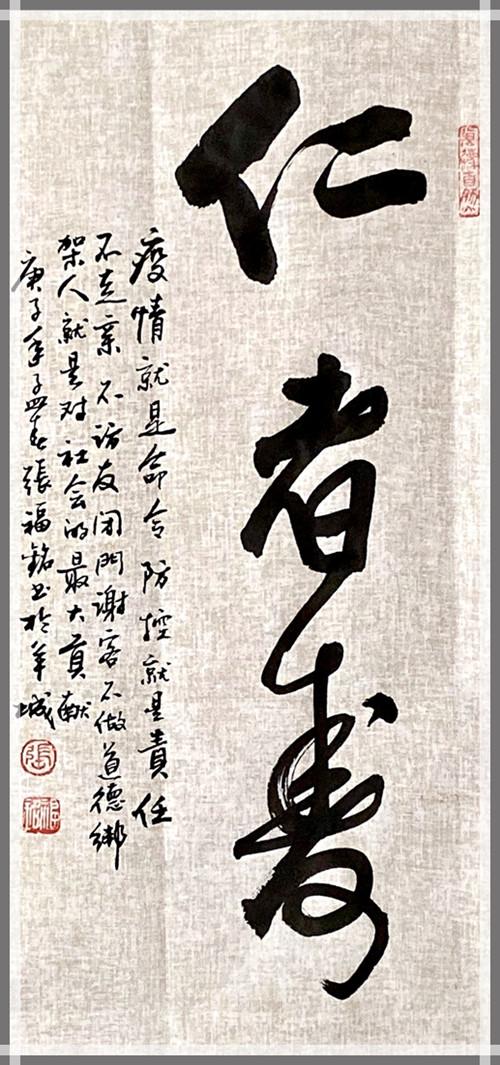 仁者壽
疫情就是命令防控就是責任
不走亲不访友闭門谢客不做道德绑
架人就是对社会的最大貢献
庚子年孟春張福銘书於羊城
張